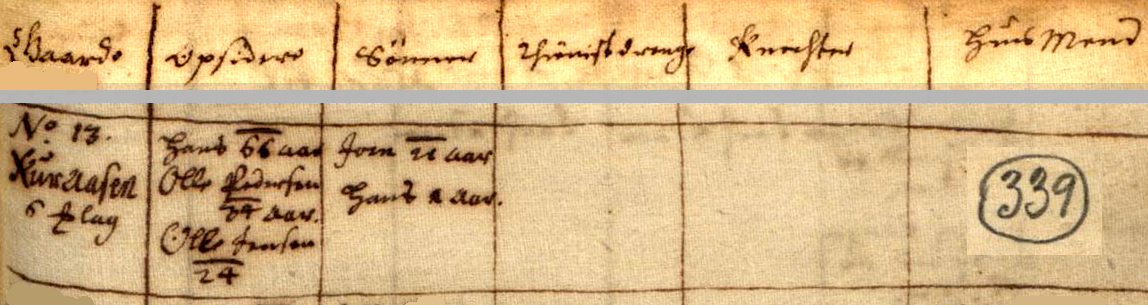 Gaarde Opsidere Sönner Thienistdrenge Knechter Huus Mend
No 13.
Kuraasen
6 Lag
Hans 66 aar
Olle Pedersen
34 aar.
Olle Jensen
24
Jom 11 aar
Hans 2 aar.
339